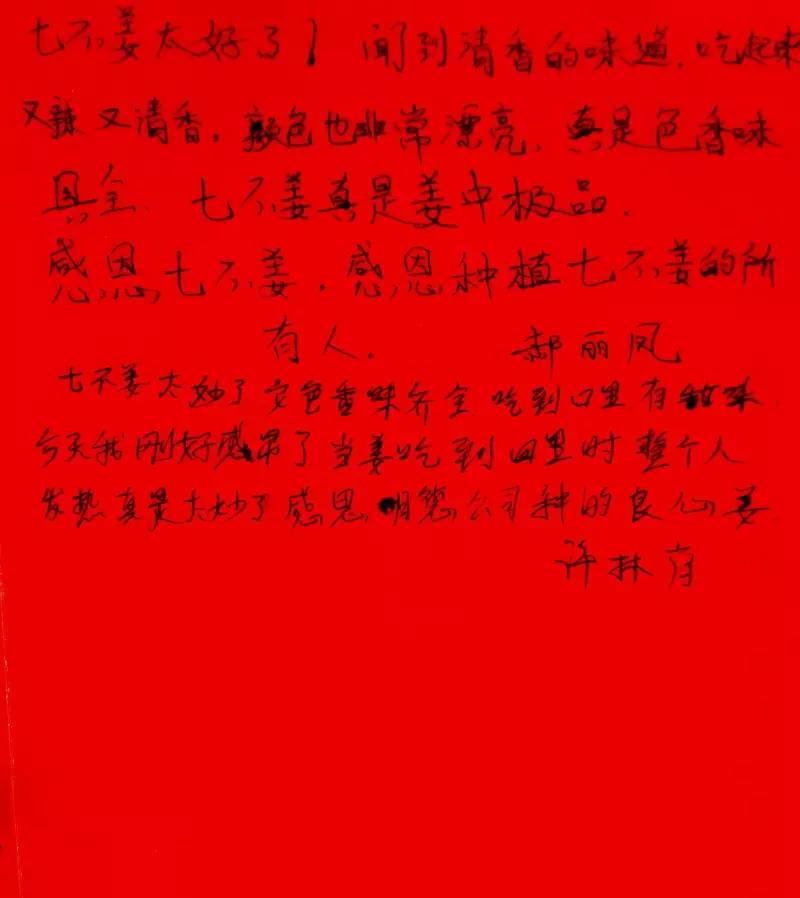 七不姜太好了! 闻到清香的味道,吃起来
又辣又清香。颜色也非常漂亮,真是色香味
具全、七不姜真是姜中极品.
感恩七不姜,感恩种植七不姜的所
有人. 郝丽凤
七不姜太妙了 色香味齐全 吃到口里有甜味
今天我刚好感冒了当姜吃到口里时整个人
发热真是太妙了感恩 公司种的良心姜
许林